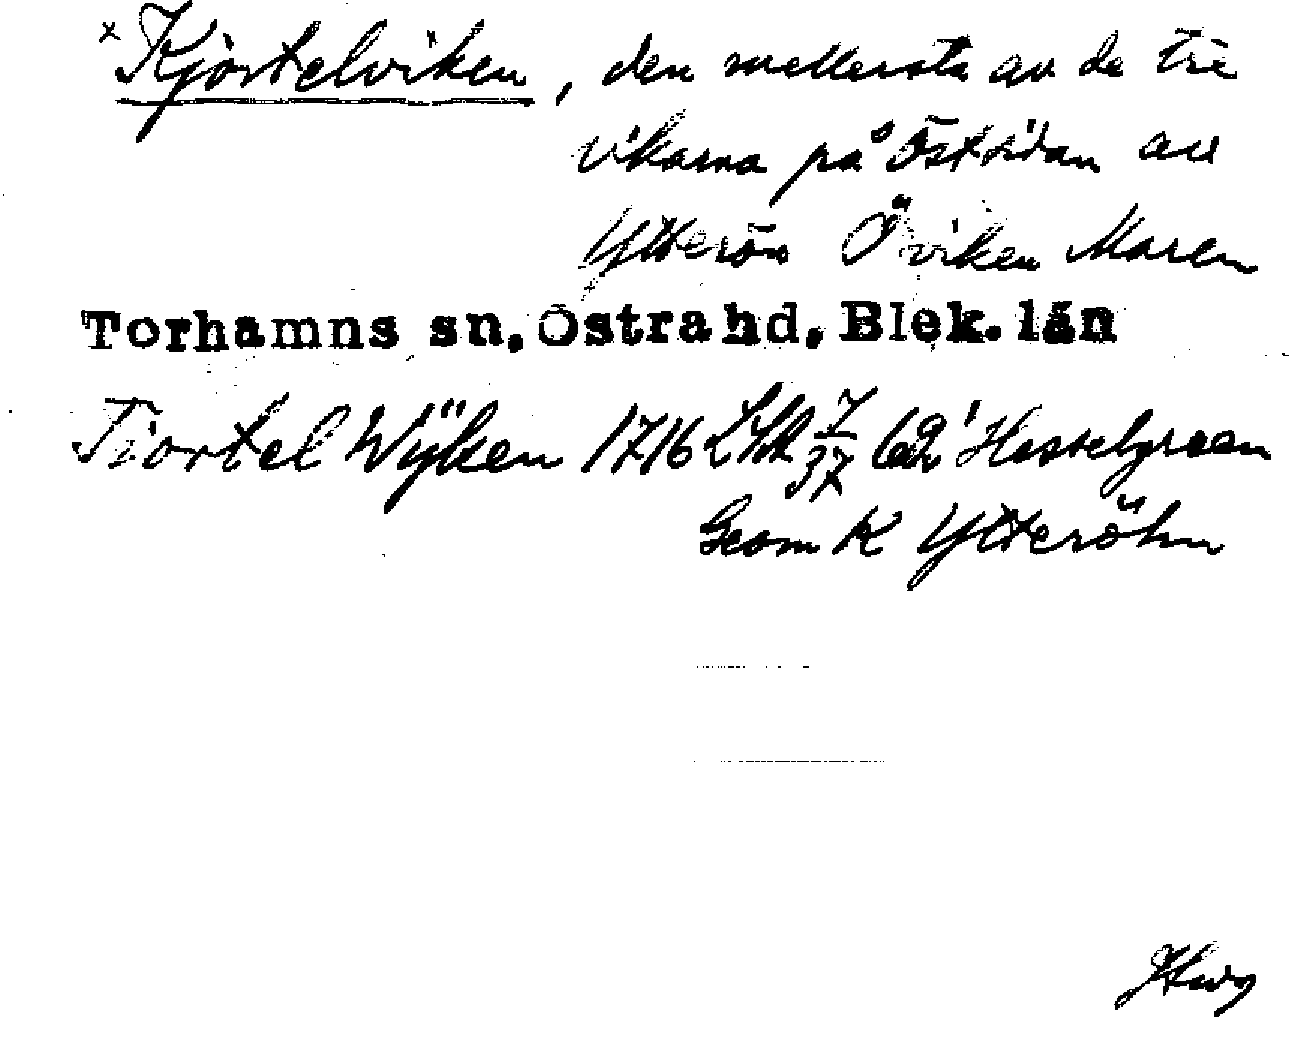 x Kjörtelviken, den mellersta av de tre
vikarna på östsidan av
Ytterön Öviken Maren
Torhamns sn, Östra hd, Blek. län
Tiortel Wÿken 1716 LSA 7/37 62' Hesselgreen
Geom K Ytteröhn